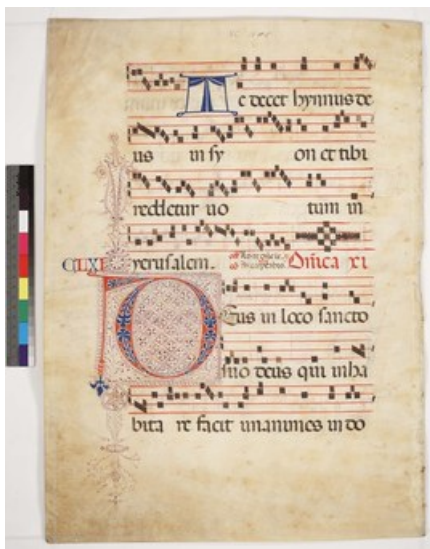 Te decet hymnus de
us in sy on et tibi
reddetur uo tum in
yerusalem. Dnica xi
CLXI
Deus in loco sancto
suo deus qui inha
bita re facit unanimes in do